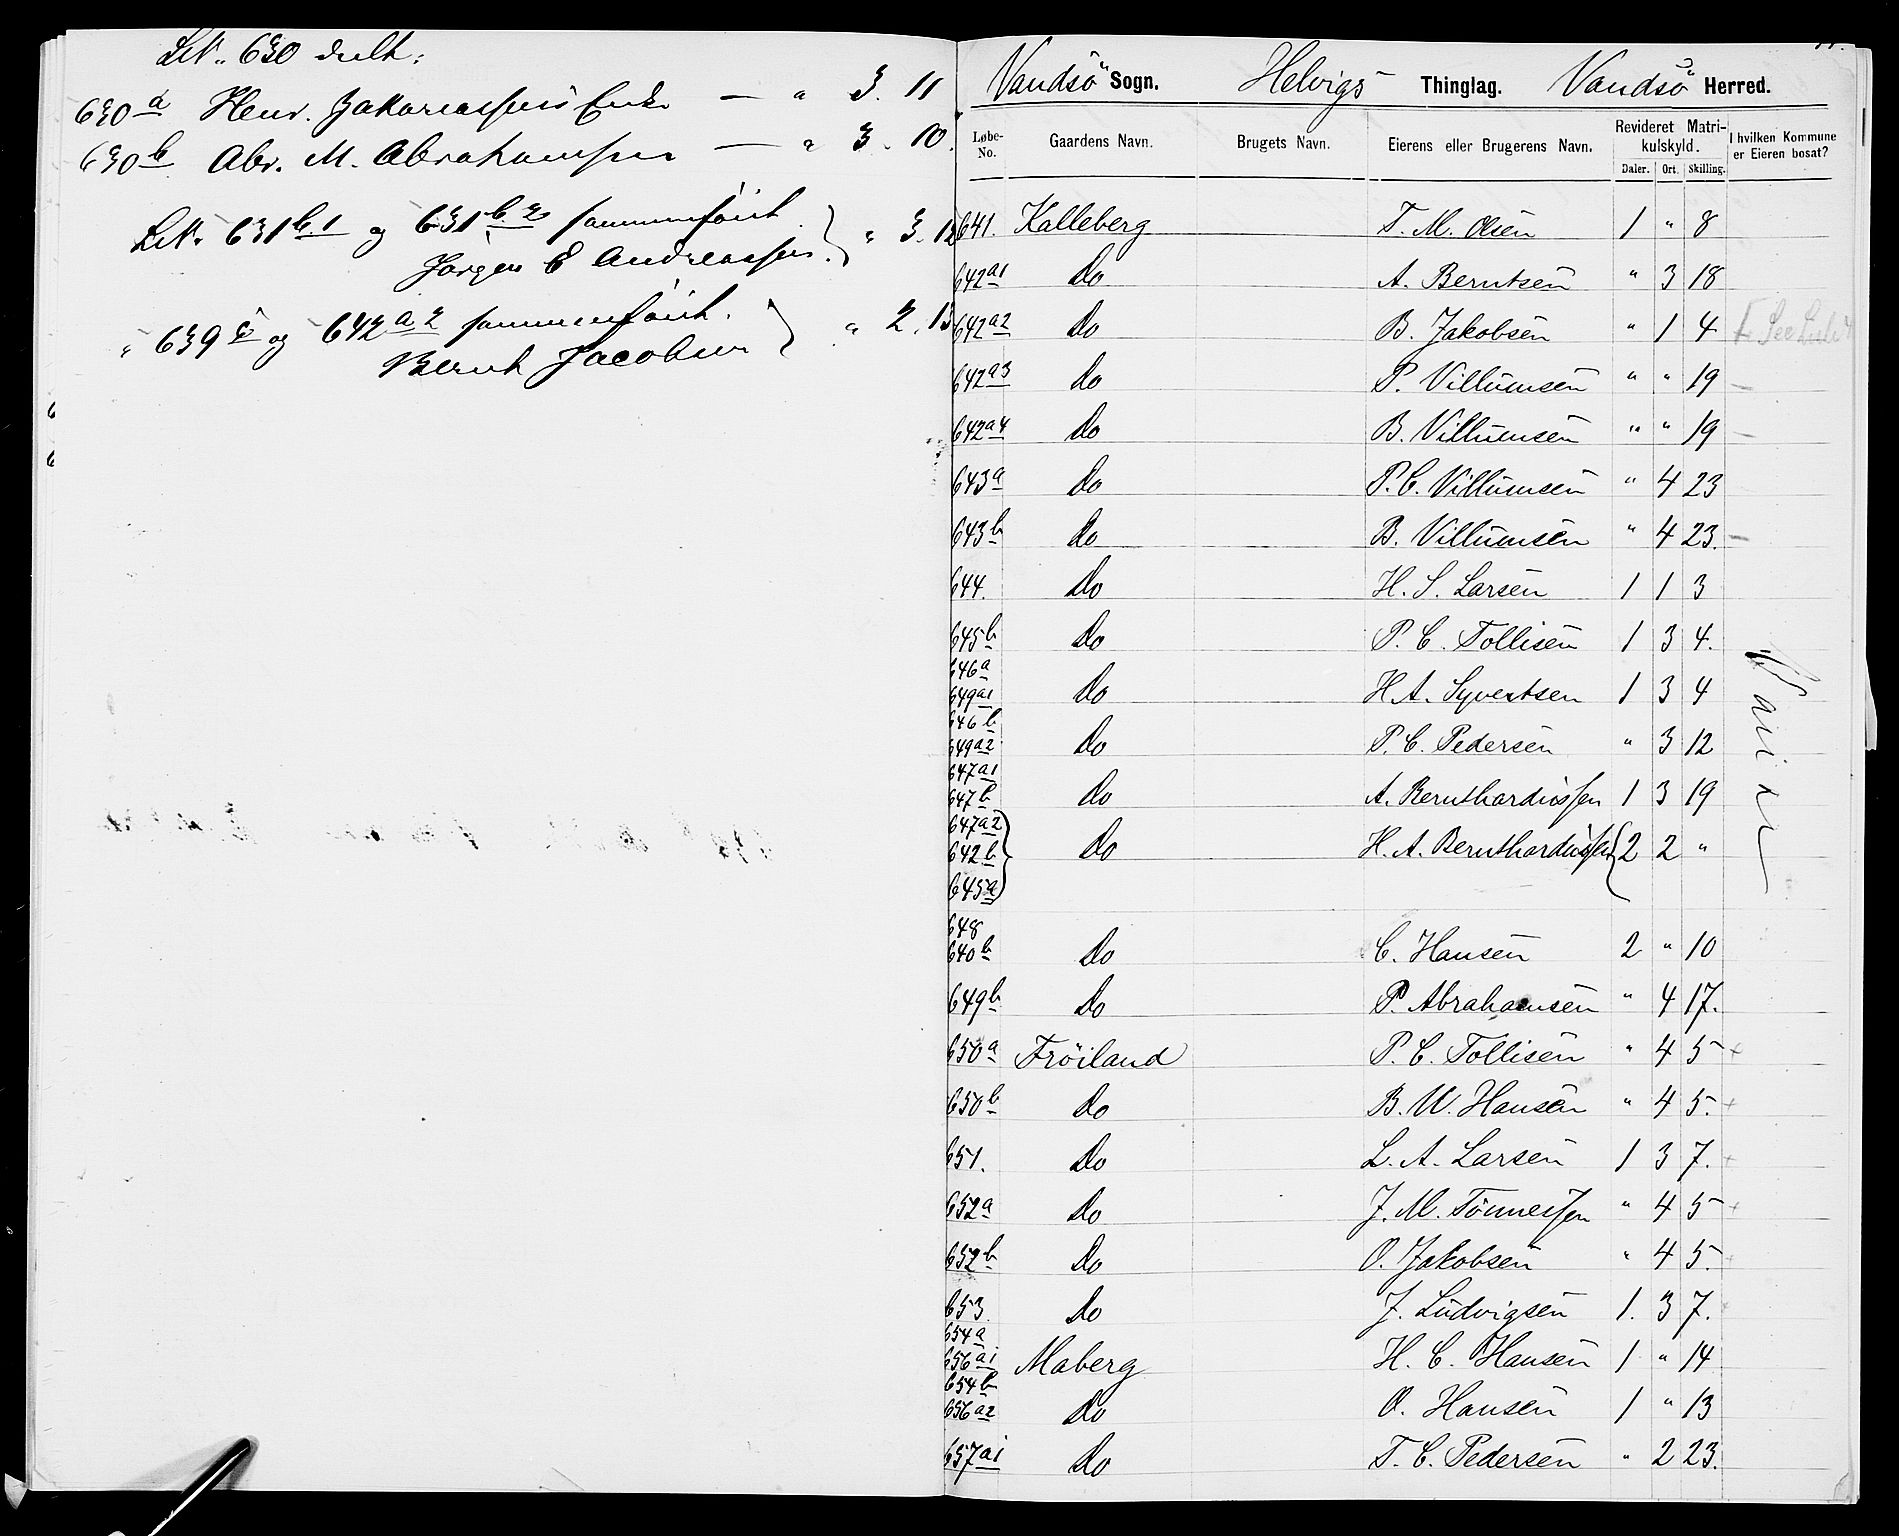 LN. 630 delt:
630a Henr. Zakariassens Enke — " 3. 11
630b Abr. M. Abrahamsen — " 3. 10.
LN. 631b.1 og 631b.2 sammenføiet } " 3. 12
Jørgen E Andreassen.
" 639c og 642a2 sammenføiet. } " 2. 13
Bernt Jacobsen
Vandsö Sogn. Helvigs Thinglag. Vandsö Herred.
Løbe-No. Gaardens Navn. Brugets Navn. Eierens eller Brugerens Navn. Revideret Matrikulskyld. I hvilken Kommune er Eieren bosat?
Daler. Ort. Skilling.
641. Kalleberg T. M. Olsen 1 " 8
642a1 Do A. Berntsen " 3 18
642a2 Do B. Jakobsen " 1 4 See
642a3 Do P. Villumsen " " 19 —
642a4 Do B. Villumsen " " 19 —
643a Do P. C. Villumsen " 4 23
643b Do B. Villumsen " 4 23. —
644. Do H. S. Larsen 1 1 3
645b Do P. C. Tollisen 1 3 4.
646a 649a1 Do H. A. Syvertsen 1 3 4
646b 649a2 Do P. C. Pedersen " 3 12
647a1 647b Do A. Bernthardiussen 1 3 19
647a2 642b 645a } Do H. A. Bernthardiussen { 2 2 "
648 640b Do C. Hansen 2 " 10
649b Do P. Abrahamsen " 4 17.
650a Fröiland P. C. Tollisen " 4 5 +
650b Do B. W. Hansen " 4 5. +
651. Do L. A. Larsen 1 3 7. +
652a Do J. M. Tönnessen " 4 5 +
652b Do O. Jakobsen " 4 5. +
653. Do J. Ludvigsen 1. 3 7.
654a 656a1 Maberg H. C. Hansen 1 " 14
654b 656a2 Do O. Hansen 1 " 13
657a1 Do T. C. Pedersen " 2 23.